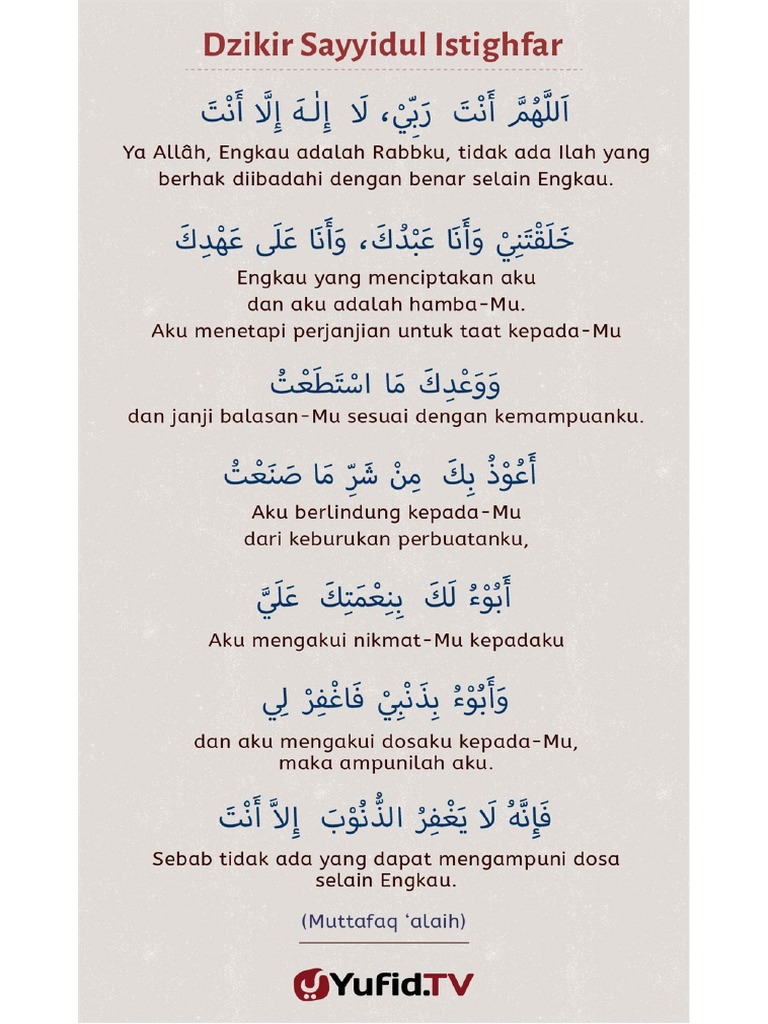 Dzikir Sayyidul Istighfar
اَللَّهُمَّ أَنْتَ رَبِّيْ، لَا إِلٰـهَ إِلَّا أَنْتَ
Ya Allâh, Engkau adalah Rabbku, tidak ada Ilah yang
berhak diibadahi dengan benar selain Engkau.
خَلَقْتَنِيْ وَأَنَا عَبْدُكَ، وَأَنَا عَلَى عَهْدِكَ
Engkau yang menciptakan aku
dan aku adalah hamba-Mu.
Aku menetapi perjanjian untuk taat kepada-Mu
وَوَعْدِكَ مَا اسْتَطَعْتُ
dan janji balasan-Mu sesuai dengan kemampuanku.
أَعُوْذُ بِكَ مِنْ شَرِّ مَا صَنَعْتُ
Aku berlindung kepada-Mu
dari keburukan perbuatanku,
أَبُوْءُ لَكَ بِنِعْمَتِكَ عَلَيَّ
Aku mengakui nikmat-Mu kepadaku
وَأَبُوْءُ بِذَنْبِيْ فَاغْفِرْ لِي
dan aku mengakui dosaku kepada-Mu,
maka ampunilah aku.
فَإِنَّهُ لَا يَغْفِرُ الذُّنُوْبَ إِلاَّ أَنْتَ
Sebab tidak ada yang dapat mengampuni dosa
selain Engkau.
(Muttafaq ‘alaih)
Yufid.TV